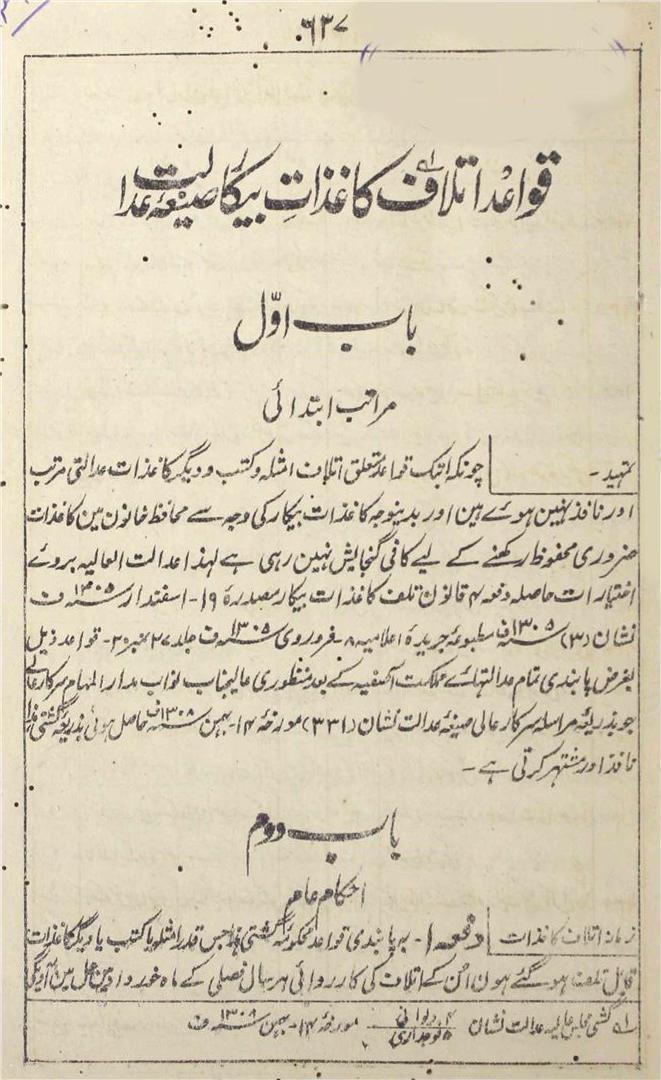 ۶۳۷
قواعد اتلاف کاغذات بیکار صیغۂ عدالت
باب اوّل
مراتب ابتدائی
تمہید - چونکہ ابتک قواعد متعلق اتلاف امثلہ وکتب و دیگر کاغذات عدالتی مرتب
اور نافذ نہین ہوئے ہین اور بدینوجہ کاغذات بیکار کی وجہ سے محافظ خانون مین کاغذات
ضروری محفوظ رکھنے کے لیے کافی گنجایش نہین رہی ہے لہذا عدالت العالیہ بروئے
اختیارات حاصلہ دفعہ ۴ قانون تلف کاغذات بیکار مصدرہ ۱۹- اسفندار ۱۳۰۵ سنہ ف
نشان (۳) ۱۳۰۵ سنہ ف مطبوعہ جریدۂ اعلامیہ ۸- فروردی ۱۳۰۵ سنہ ف جلد ۲۷ نمبر ۲۰- قواعد ذیل
بغرض پابندی تمام عدالتہائے مملکت آصفیہ کے بعد منظوری عالیجناب نواب مدار المہام سرکار عالی
جو بذریعۂ مراسلہ سرکار عالی صیغۂ عدالت نشان (۳۳۱) مورخۂ ۱۴- بہمن ۱۳۰۸ ف حاصل ہوئی بذریعۂ گشتی ہذا
نافذ اور مشتہر کرتی ہے -
باب دوم
احکام عام
زمانہ اتلاف کاغذات دفعہ ۱- بہ پابندی قواعد محکومہ گشتی ہذا جس قدر امثلہ یا کتب یا دیگر کاغذات
قابل تلف ہو گئے ہون اُن کے اتلاف کی کارروائی ہر سال فصلی کے ماہ خورداد مین عمل مین آئیگی
لہ گشتی مجلس عالیہ عدالت نشان ۴ دیوانی ۵ فوجداری مورخۂ ۱۴- بہمن ۱۳۰۸ سنہ ف